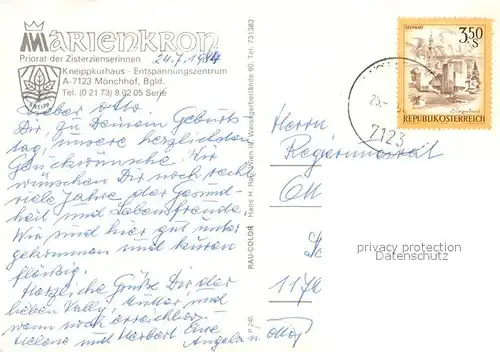 MARIENKRON
Priorat der Zisterzienserinnen
24.7.1984
Kneippkurhaus - Entspannungszentrum
A-7123 Mönchhof, Bgld.
Tel. (0 21 73) 8 02 05 Serie
KNEIPP
Lieber Otto!
Dir, zu Deinem Geburts
tag, unsere herzlichsten
Glückwünsche. Wir
wünschen Dir noch recht
viele Jahre der Gesund-
heit und Lebensfreude.
Wir sind hier gut unter
gekommen und kuren
fleißig.
Herzliche Grüße Dir, der
lieben Vally, Mutter und
wenn noch erreichbar
Helene und Herbert Eure
Angela u Otto
RAU-COLOR Hans H. Rau, Wien IV, Weyringerbelände 60, Tel. 731383
P 748
3.50 S
REPUBLIK ÖSTERREICH
7123
Herrn
Regierungsrat
117
privacy protection
Datenschutz